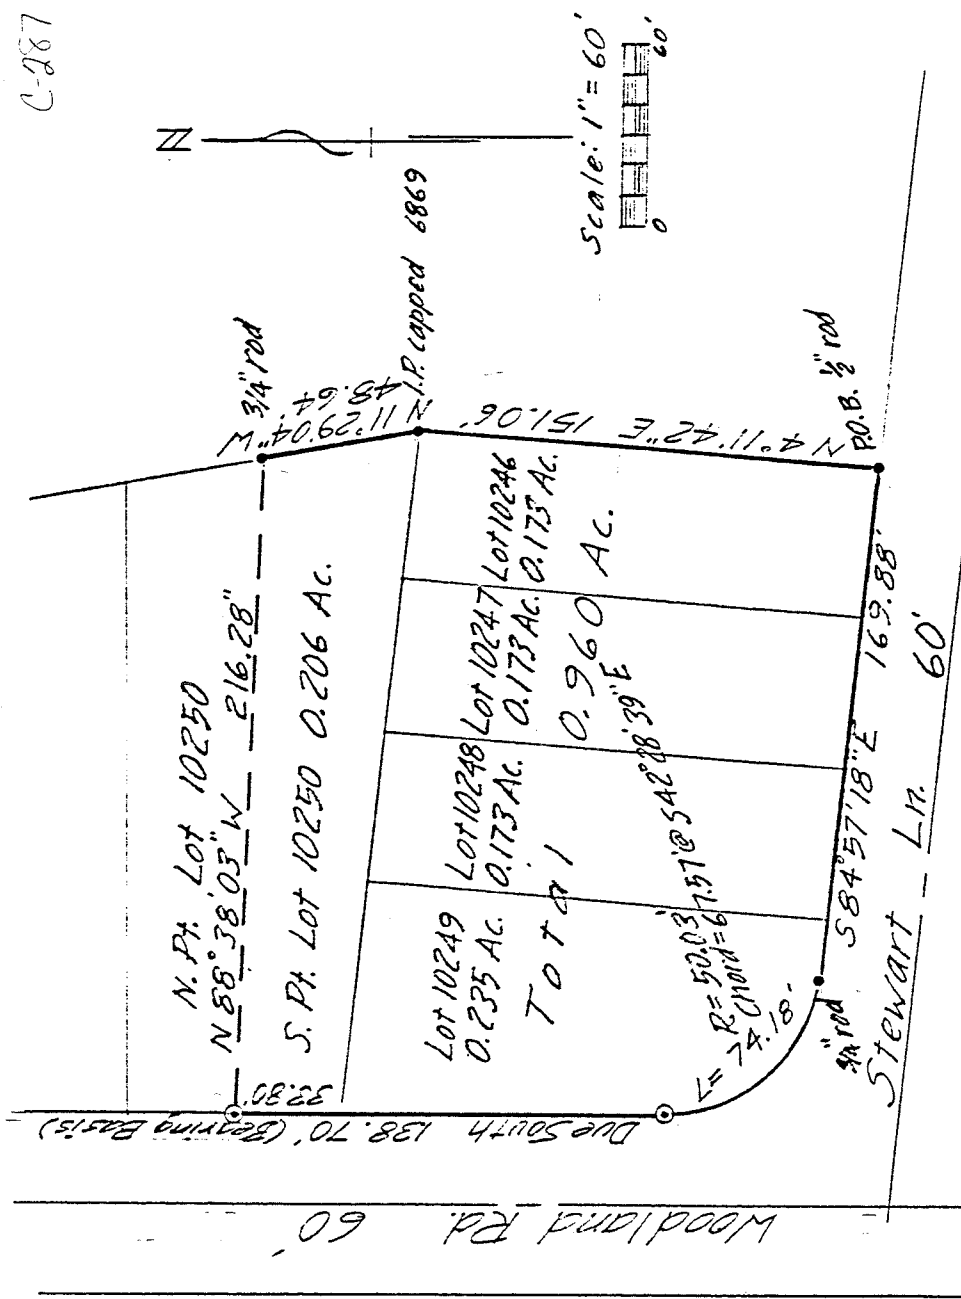 C-287
N
Scale: 1" = 60'
0 60'
3/4" rod
I.P. capped 6869
N 11°29'04" W
48.64
N 4°11'42" E 151.06'
P.O.B. 1/2" rod
N. Pt. Lot 10250
N 88°38'03" W 216.28"
S. Pt. Lot 10250 0.206 Ac.
33.80'
Lot 10249
0.235 Ac.
Lot 10248
0.173 Ac.
Lot 10247
0.173 Ac.
Lot 10246
0.173 Ac.
Total 0.960 Ac.
R= 50.03'
Chord= 67.57' @ S42°28'39"E
L= 74.18'
3/4" rod
S 84°57'18" E 169.88'
Stewart Ln. 60'
Due South 138.70' (Bearing Basis)
Woodland Rd. 60'